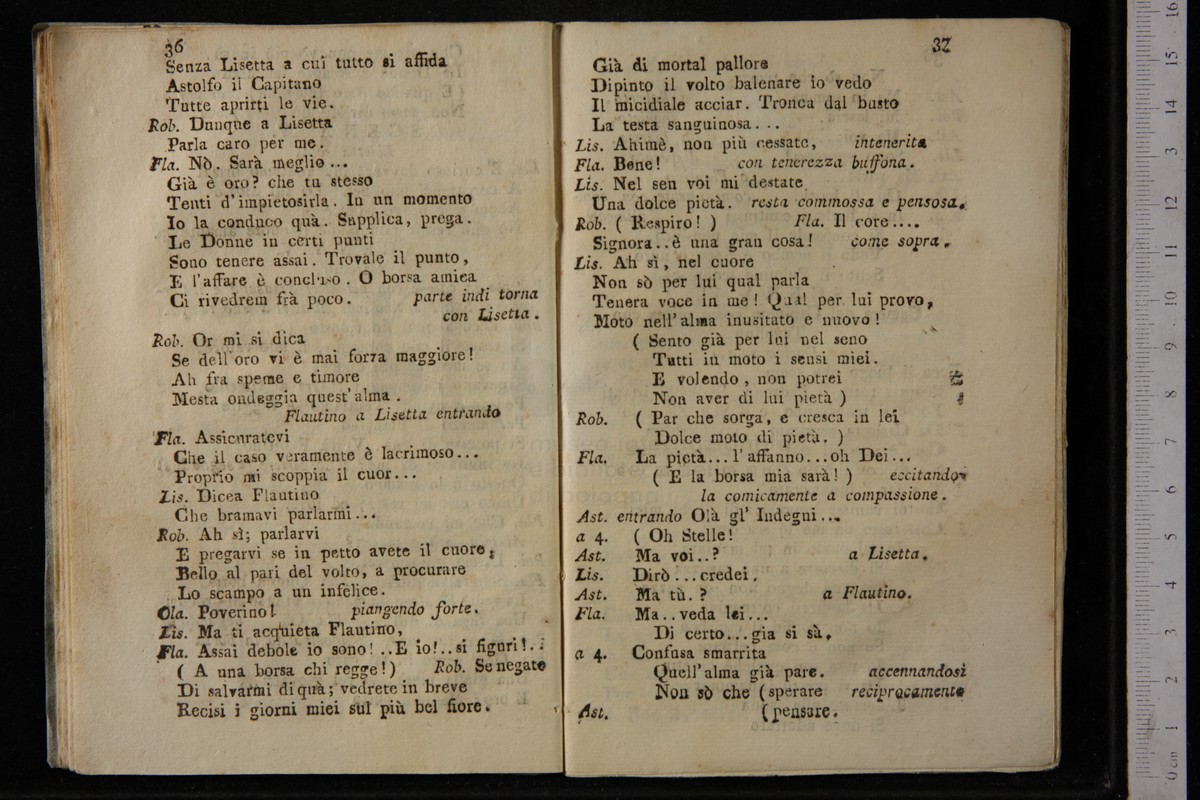 36
Senza Lisetta a cui tutto si affida
Astolfo il Capitano
Tutte aprirti le vie.
Rob. Dunque a Lisetta
Parla caro per me.
Fla. Nò. Sarà meglio...
Già è oro? che tu stesso
Tenti d'impietosirla. In un momento
Io la conduco quà. Supplica, prega.
Le Donne in certi punti
Sono tenere assai. Trovale il punto,
E l'affare è concluso. O borsa amica
Ci rivedrem frà poco. parte indi torna
con Lisetta.
Rob. Or mi si dica
Se dell'oro vi è mai forza maggiore!
Ah fra speme e timore
Mesta ondeggia quest'alma.
Flautino a Lisetta entrando
Fla. Assicuratevi
Che il caso veramente è lacrimoso...
Proprio mi scoppia il cuor...
Lis. Dicea Flautino
Che bramavi parlarmi...
Rob. Ah sì; parlarvi
E pregarvi se in petto avete il cuore,
Bello al pari del volto, a procurare
Lo scampo a un infelice.
Ola. Poverino! piangendo forte.
Lis. Ma ti acquieta Flautino,
Fla. Assai debole io sono! ..E io!..si figuri!..
( A una borsa chi regge! ) Rob. Se negate
Di salvarmi di quà; vedrete in breve
Recisi i giorni miei sul più bel fiore.
37
Già di mortal pallore
Dipinto il volto balenare io vedo
Il micidiale acciar. Tronca dal busto
La testa sanguinosa...
Lis. Ahimè, non più cessate, intenerita
Fla. Bene! con tenerezza buffona.
Lis. Nel sen voi mi destate
Una dolce pietà. resta commossa e pensosa.
Rob. ( Respiro! ) Fla. Il core....
Signora..è una gran cosa! come sopra.
Lis. Ah sì, nel cuore
Non sò per lui qual parla
Tenera voce in me! Qual per lui provo,
Moto nell'alma inusitato e nuovo!
( Sento già per lui nel seno
Tutti in moto i sensi miei.
E volendo, non potrei
Non aver di lui pietà )
Rob. ( Par che sorga, e cresca in lei
Dolce moto di pietà. )
Fla. La pietà...l'affanno...oh Dei...
( E la borsa mia sarà! ) eccitando-
la comicamente a compassione.
Ast. entrando Olà gl' Indegni...
a 4. ( Oh Stelle!
Ast. Ma voi..? a Lisetta.
Lis. Dirò...credei.
Ast. Ma tù.? a Flautino.
Fla. Ma..veda lei...
Di certo...gia si sà.
a 4. Confusa smarrita
Quell'alma già pare. accennandosi
Non sò che (sperare reciprocamente
Ast. (pensare.